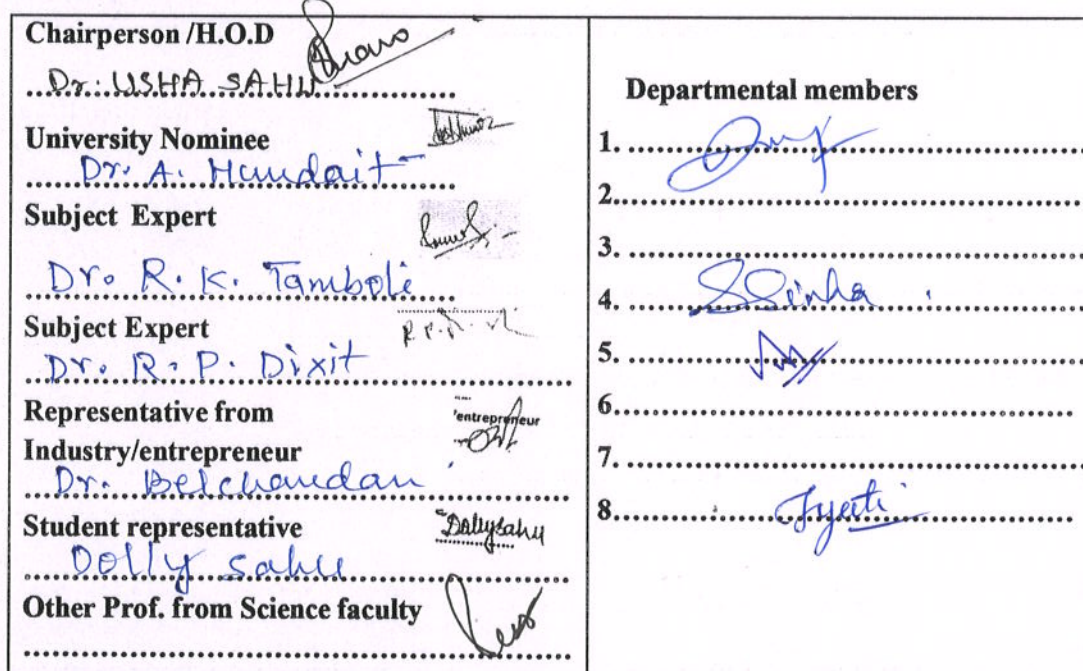 Chairperson /H.O.D
Dr. USHA SAHU
University Nominee
Dr. A.
Subject Expert
Dr. R. K. Tamboli
Subject Expert
Dr. R. P. Dixit
Representative from
'entrepreneur
Industry/entrepreneur
Dr. Belchandan
Student representative
Dolly Sahu
Dolly sahu
Other Prof. from Science faculty
Departmental members
1.
2.
3.
4. SSinha
5.
6.
7.
8. Jyoti